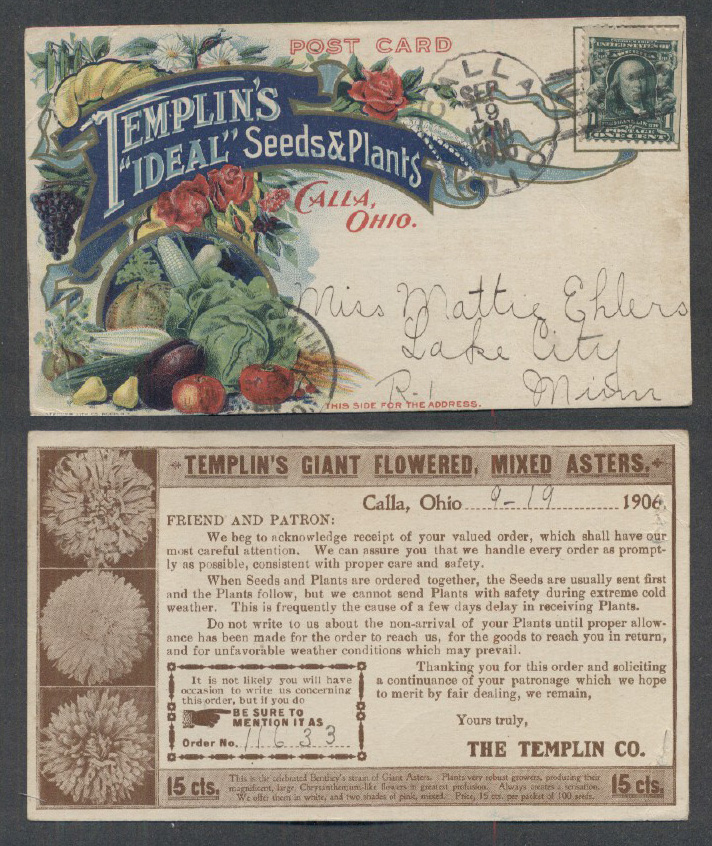 POST CARD
TEMPLIN'S
"IDEAL" Seeds & Plants
CALLA,
OHIO.
CALLA
SEP
19
OHIO
UNITED STATES OF
1 1
POSTAGE
ONE CENT
Miss Mattie Ehlers
Lake City
R-1 Minn
MINN
THIS SIDE FOR THE ADDRESS.
TEMPLIN'S GIANT FLOWERED, MIXED ASTERS.
Calla, Ohio 9-19 1906
FRIEND AND PATRON:
We beg to acknowledge receipt of your valued order, which shall have our
most careful attention. We can assure you that we handle every order as prompt-
ly as possible, consistent with proper care and safety.
When Seeds and Plants are ordered together, the Seeds are usually sent first
and the Plants follow, but we cannot send Plants with safety during extreme cold
weather. This is frequently the cause of a few days delay in receiving Plants.
Do not write to us about the non-arrival of your Plants until proper allow-
ance has been made for the order to reach us, for the goods to reach you in return,
and for unfavorable weather conditions which may prevail.
It is not likely you will have
occasion to write us concerning
this order, but if you do
BE SURE TO
MENTION IT AS
Order No. 11633
Thanking you for this order and soliciting
a continuance of your patronage which we hope
to merit by fair dealing, we remain,
Yours truly,
THE TEMPLIN CO.
15 cts.
This is the celebrated Benary's strain of Giant Asters. Plants very robust growers, producing their
magnificent, large Chrysanthemum-like flowers in greatest profusion. Always creates a sensation.
We offer them in white, and two shades of pink, mixed. Price, 15 cts. per packet of 100 seeds.
15 cts.